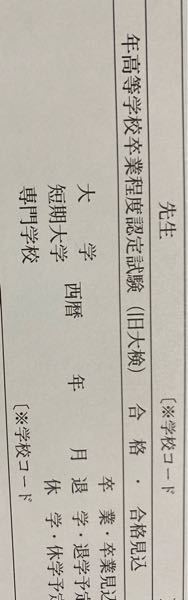 先生　〔※学校コード
年高等学校卒業程度認定試験（旧大検）　合　格　・　合格見込
卒　業・卒業見込
大　学　西暦　年　月　退　学・退学予定
短期大学　休　学・休学予定
専門学校　〔※学校コード